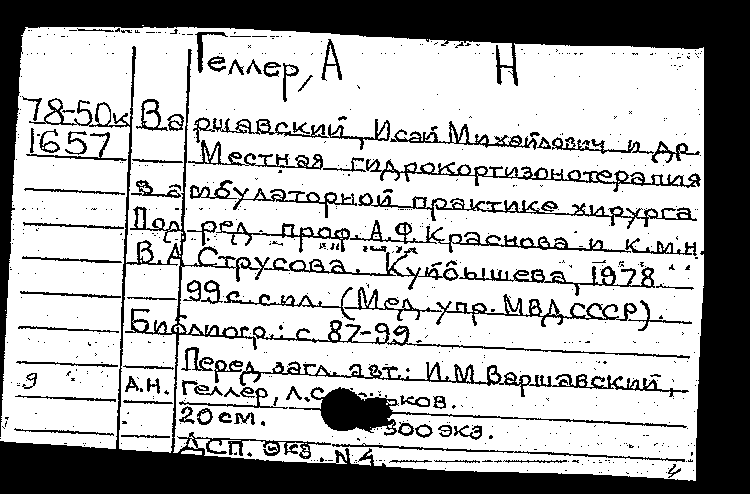 Геллер, А Н
78-50к Варшавский, Исай Михайлович и др.
1657 Местная гидрокортизонотерапия
в амбулаторной практике хирурга
Под ред. проф. А.Ф. Краснова и к.м.н.
В.А Струсова. Куйбышева, 1978.
99с. с ил. (Мед. упр. МВД СССР).
Библиогр.: с. 87-99.
Перед загл. авт.: И.М. Варшавский,
9 А.Н. Геллер,
20 см. 300 экз.
ДСП. экз. N 4.